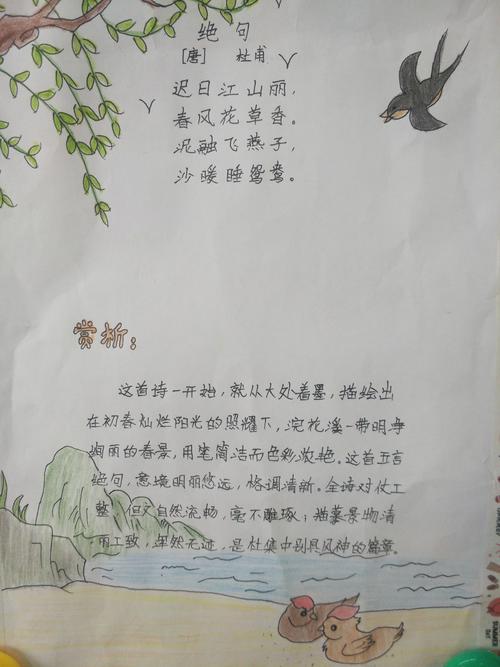 绝句
[唐] 杜甫
迟日江山丽,
春风花草香。
泥融飞燕子,
沙暖睡鸳鸯。
赏析:
这首诗一开始,就从大处着墨,描绘出
在初春灿烂阳光的照耀下,浣花溪一带明净
绚丽的春景,用笔简洁而色彩浓艳。这首五言
绝句,意境明丽悠远,格调清新。全诗对仗工
整,但又自然流畅,毫不雕琢;描摹景物清
丽工致,浑然无迹,是杜集中别具风神的篇章。